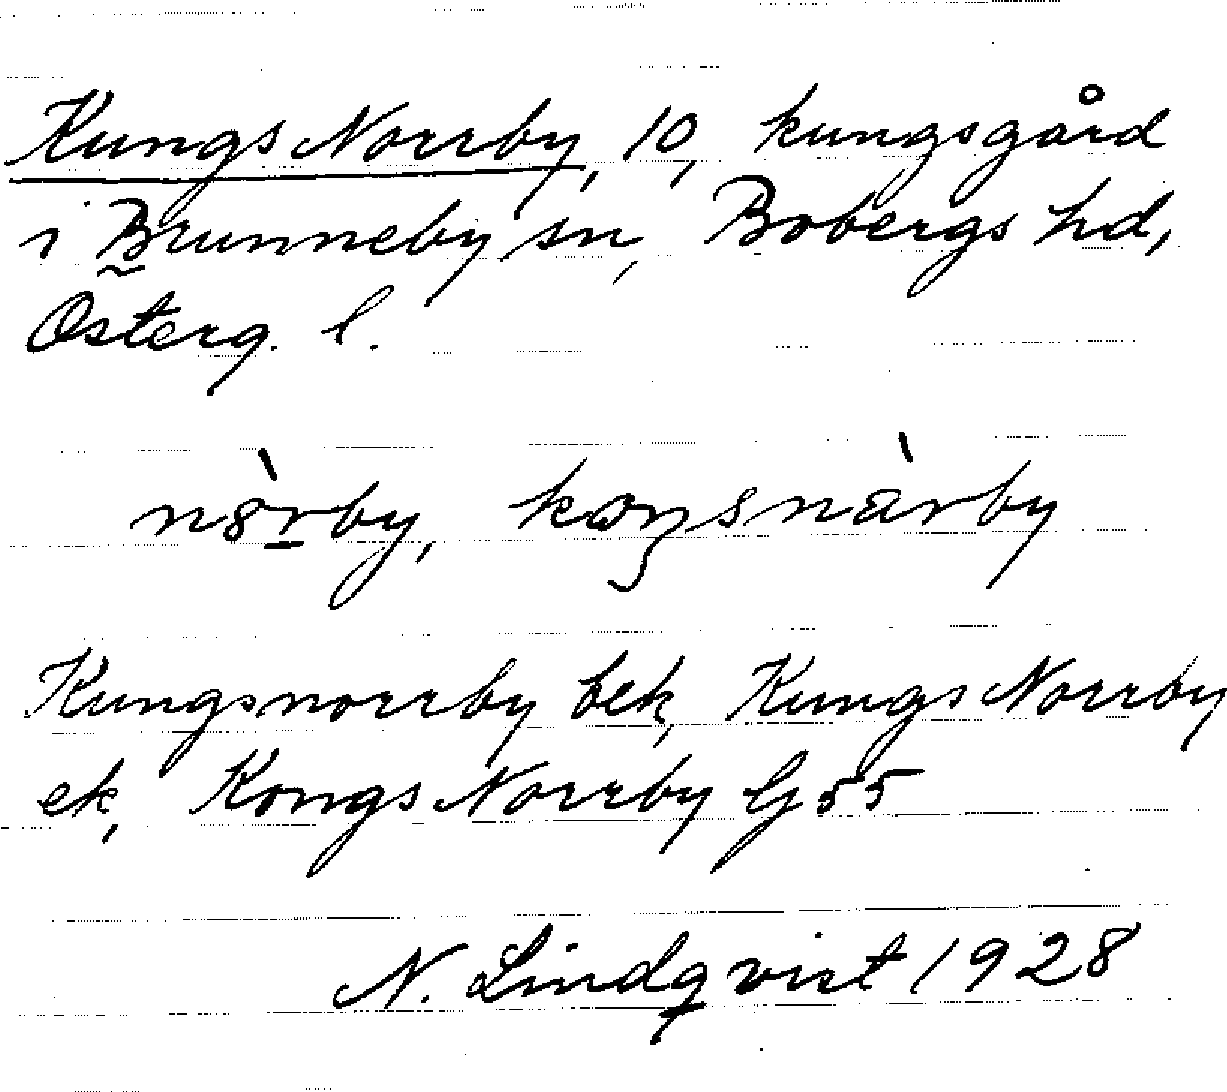 Kungs Norrby, 10, kungsgård
i Brunneby sn, Bobergs hd,
Österg. l.
Kungsnorrby bek, Kungs Norrby
ek, Kongs Norrby G 55
N. Lindqvist 1928